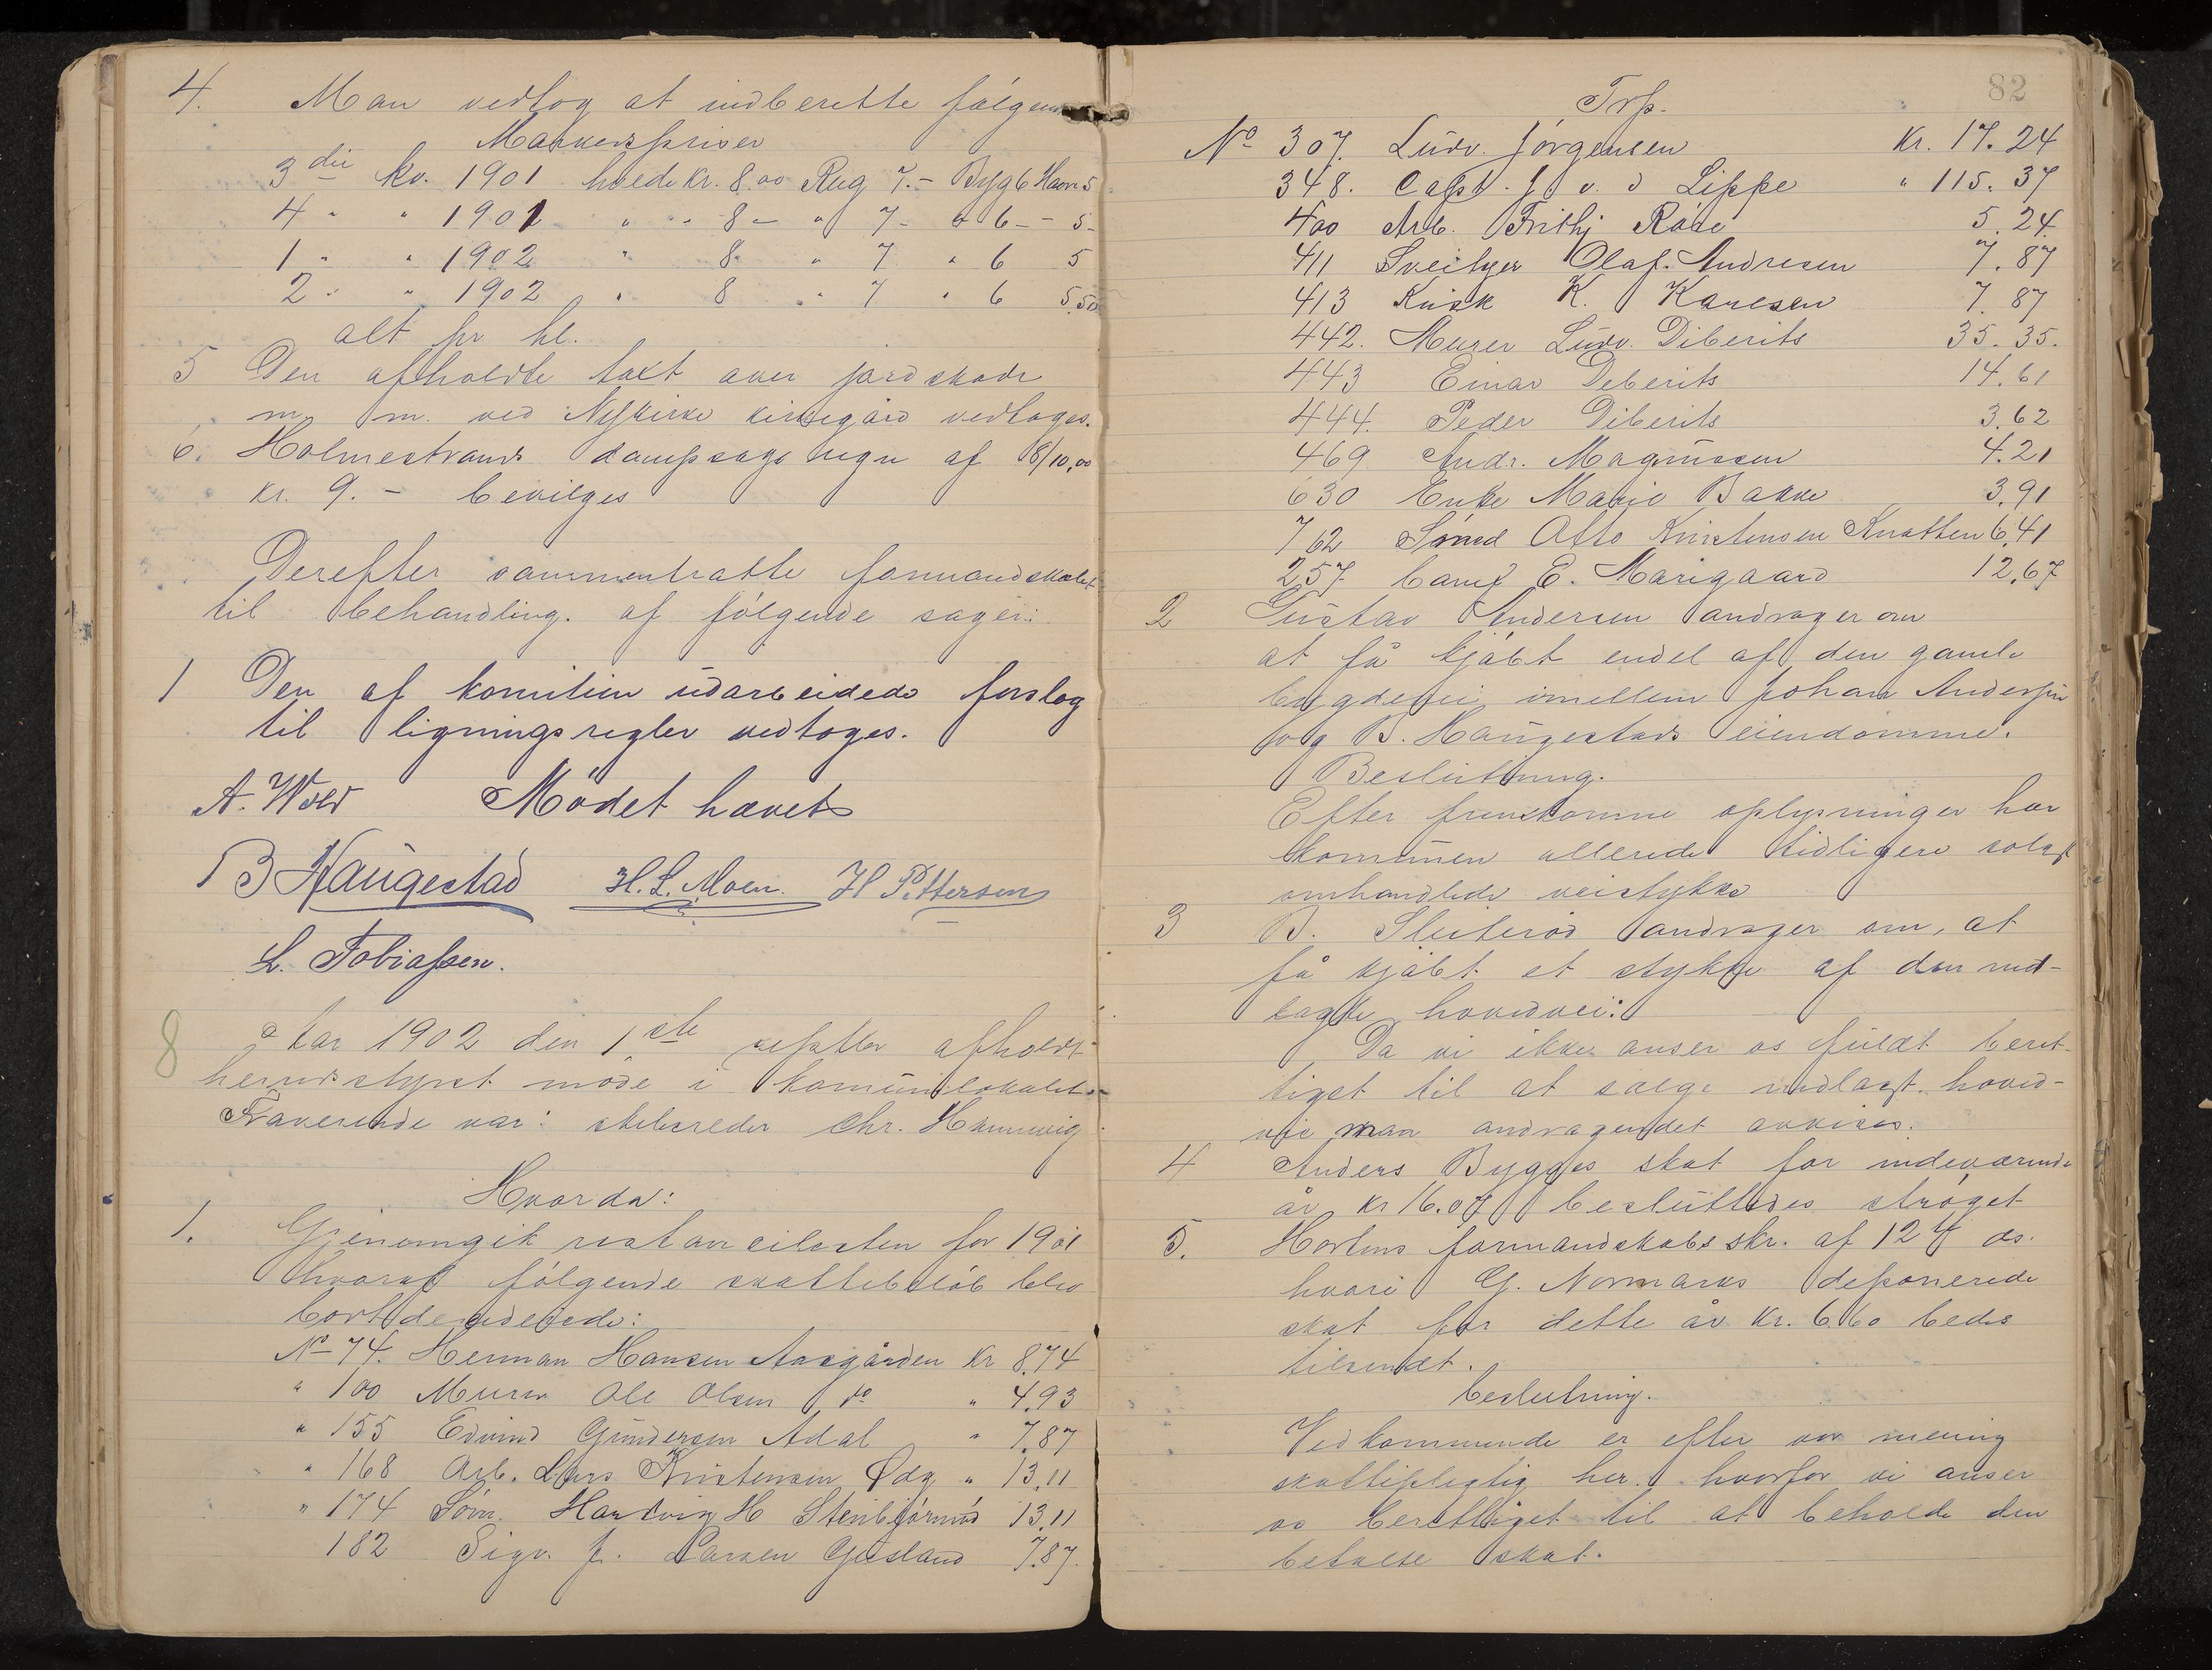 4. Man vedtog at indberette følgende
Markerspriser
3die kv. 1901 hvede kr. 8.00 Rug 7.- Byg 6 Havre 5
4 " " 1901 " " 8 - " 7 - " 6 - - 5 -
1 " " 1902 " 8 " 7 " 6 5
2 " " 1902 " 8 " 7 " 6 5.50
alt pr hl.
5 Den afholdte takt over jordskade
m. m. ved Nykirke kirkegård vedtoges.
6. Holmestrands dampsags regn af 8/10.00
kr. 9.- bevilges
Derefter sammentratte formandskabet
til behandling af følgende sager:
1 Den af komitien udarbeidede forslag
til ligningsregler vedtoges.
A. Wold Mødet hævet
B Haugestad H. L. Moen. H Pettersen
L. Tobiassen.
8 Aar 1902 den 1ste septbr afholdt
herredsstyret møde i kommunelokalet
Fraverende var: skibsreder Chr. Hannevig
Hvorda:
1. Gjenemgik restancelisten for 1901
hvoraf følgende skattebeløb blev
bortdesiderede:
No 74. Herman Hansen Aasgården Kr 8.74
" 100 Murer Ole Olsen do " 4.93
" 155 Edvind Gundersen Adal " 7.87
" 168 Arb. Lars Kristensen Ødg " 13.11
" 174 Søm. Hartvig H Stenbjørnrød 13.11
182 Sigv. J. Larsen Gusland 7.87.
82
Trp.
No 307. Ludv. Jørgensen Kr. 17.24
348. Capt. J v. d Lippe " 115.37
400 Arb. Frithj Røse 5.24
411 Sveitser Olaf. Andresen 7.87
413 Kusk K. Karlsen 7.87
442. Murer Ludv. Diberits 35.35.
443 Einar Deberits 14.61
444. Peder Diberits 3.62
469 Andr. Magnussen 4.21
630 Enke Marie Bakke 3.91
762 Sømd Otto Kristensen Knatten 6.41
257 Camf E. Marigaard 12.67
2 Gustav Andersen andrager om
at få kjøbt endel af den gamle
bygdevei imellem Johan Andersen
og B. Haugestads eiendomme.
Beslutning.
Efter fremkomne oplysninger har
kommunen allerede tidligere solgt
omhandlede veistykke
3 B. Sletterød andrager om, at
få kjøbt et stykke af den ned-
lagte hovedvei:
Da vi ikke anser os fuldt beret-
tiget til at sælge nedlagt hoved-
vei man andragendet avvises.
4 Anders Bygges skat for indeværende
år kr 16.07 besluttedes strøget
5. Hortens formandskabs skr. af 12/4 ds.
hvori G. Normarks deponerede
skat for dette år kr. 6.60 bedes
tilsendt.
beslutning.
Vedkommende er efter vor mening
skattepligtig her. hvorfor vi anser
os berettiget til at beholde den
betalte skat.